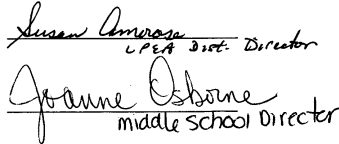 Susan Amerosa
LPEA Dist. Director
Joanne Osborne
middle School Director